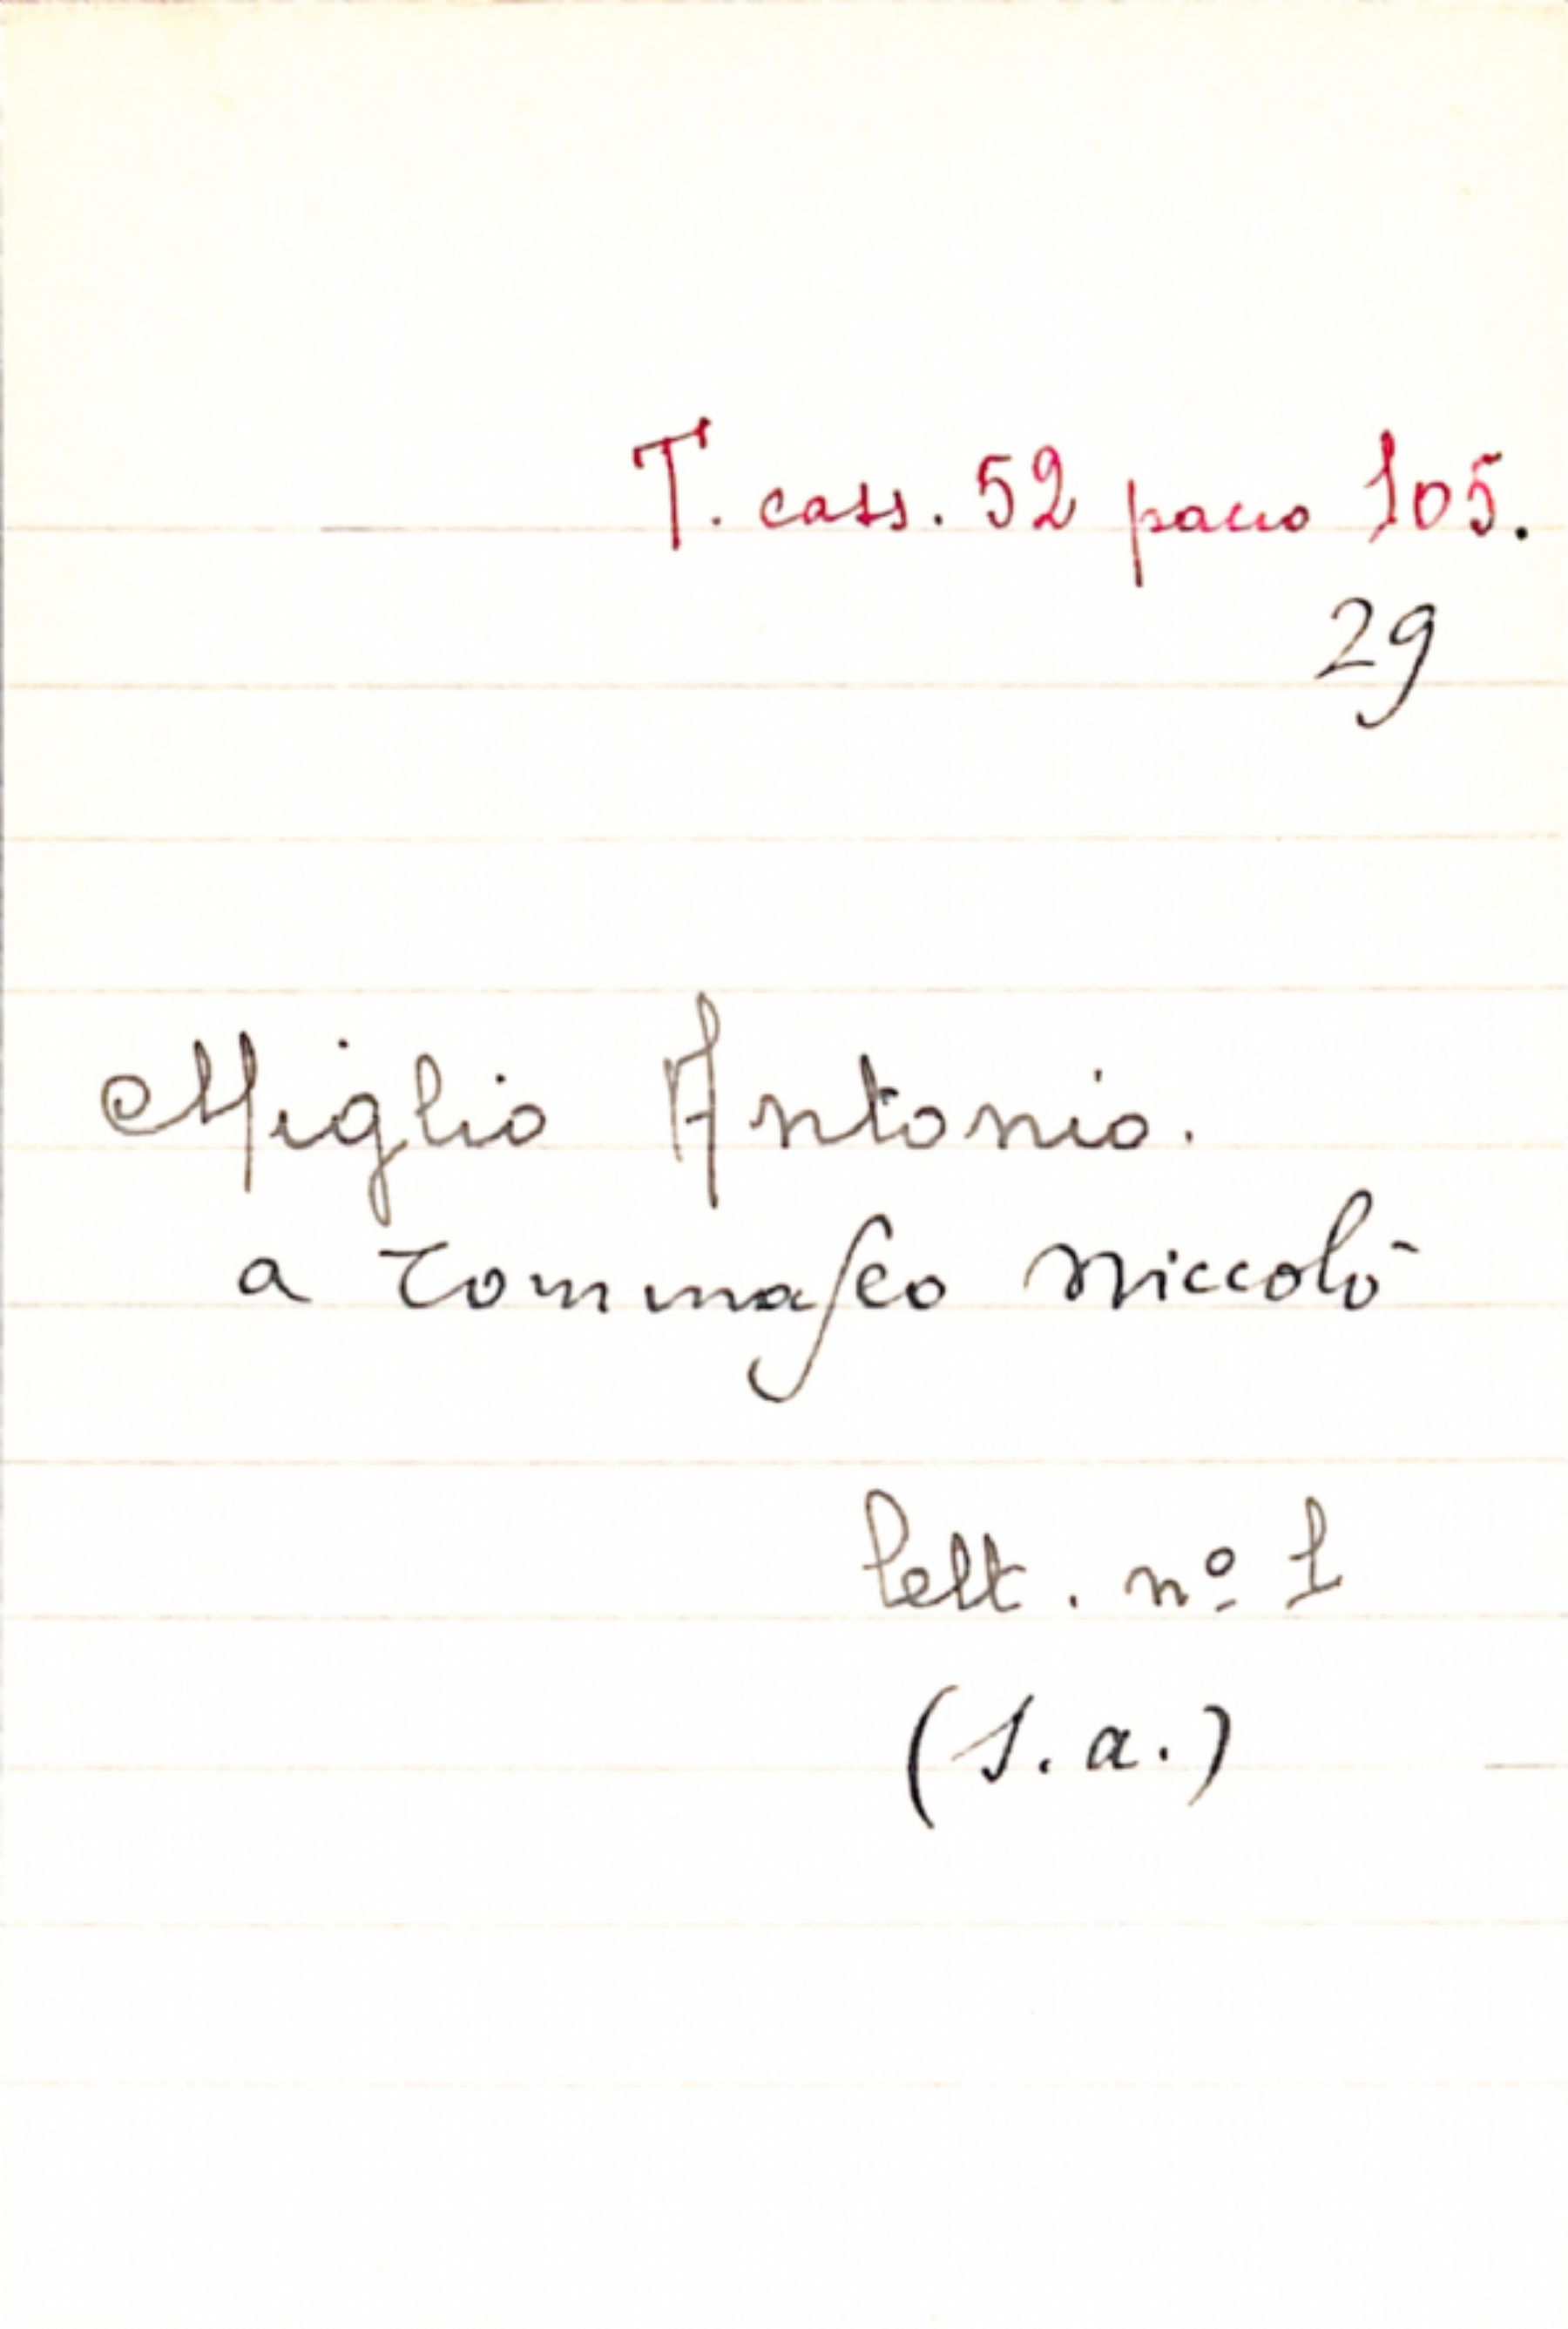 T. cass. 52 pacco 105.
29
Miglio Antonio.
a Tommaseo Niccolò
lett. nº 1
(s. a.)